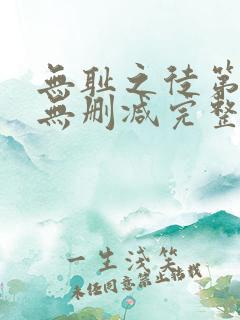 無耻之徒第
無删减完整
一生浅笑
未经同意禁止转载